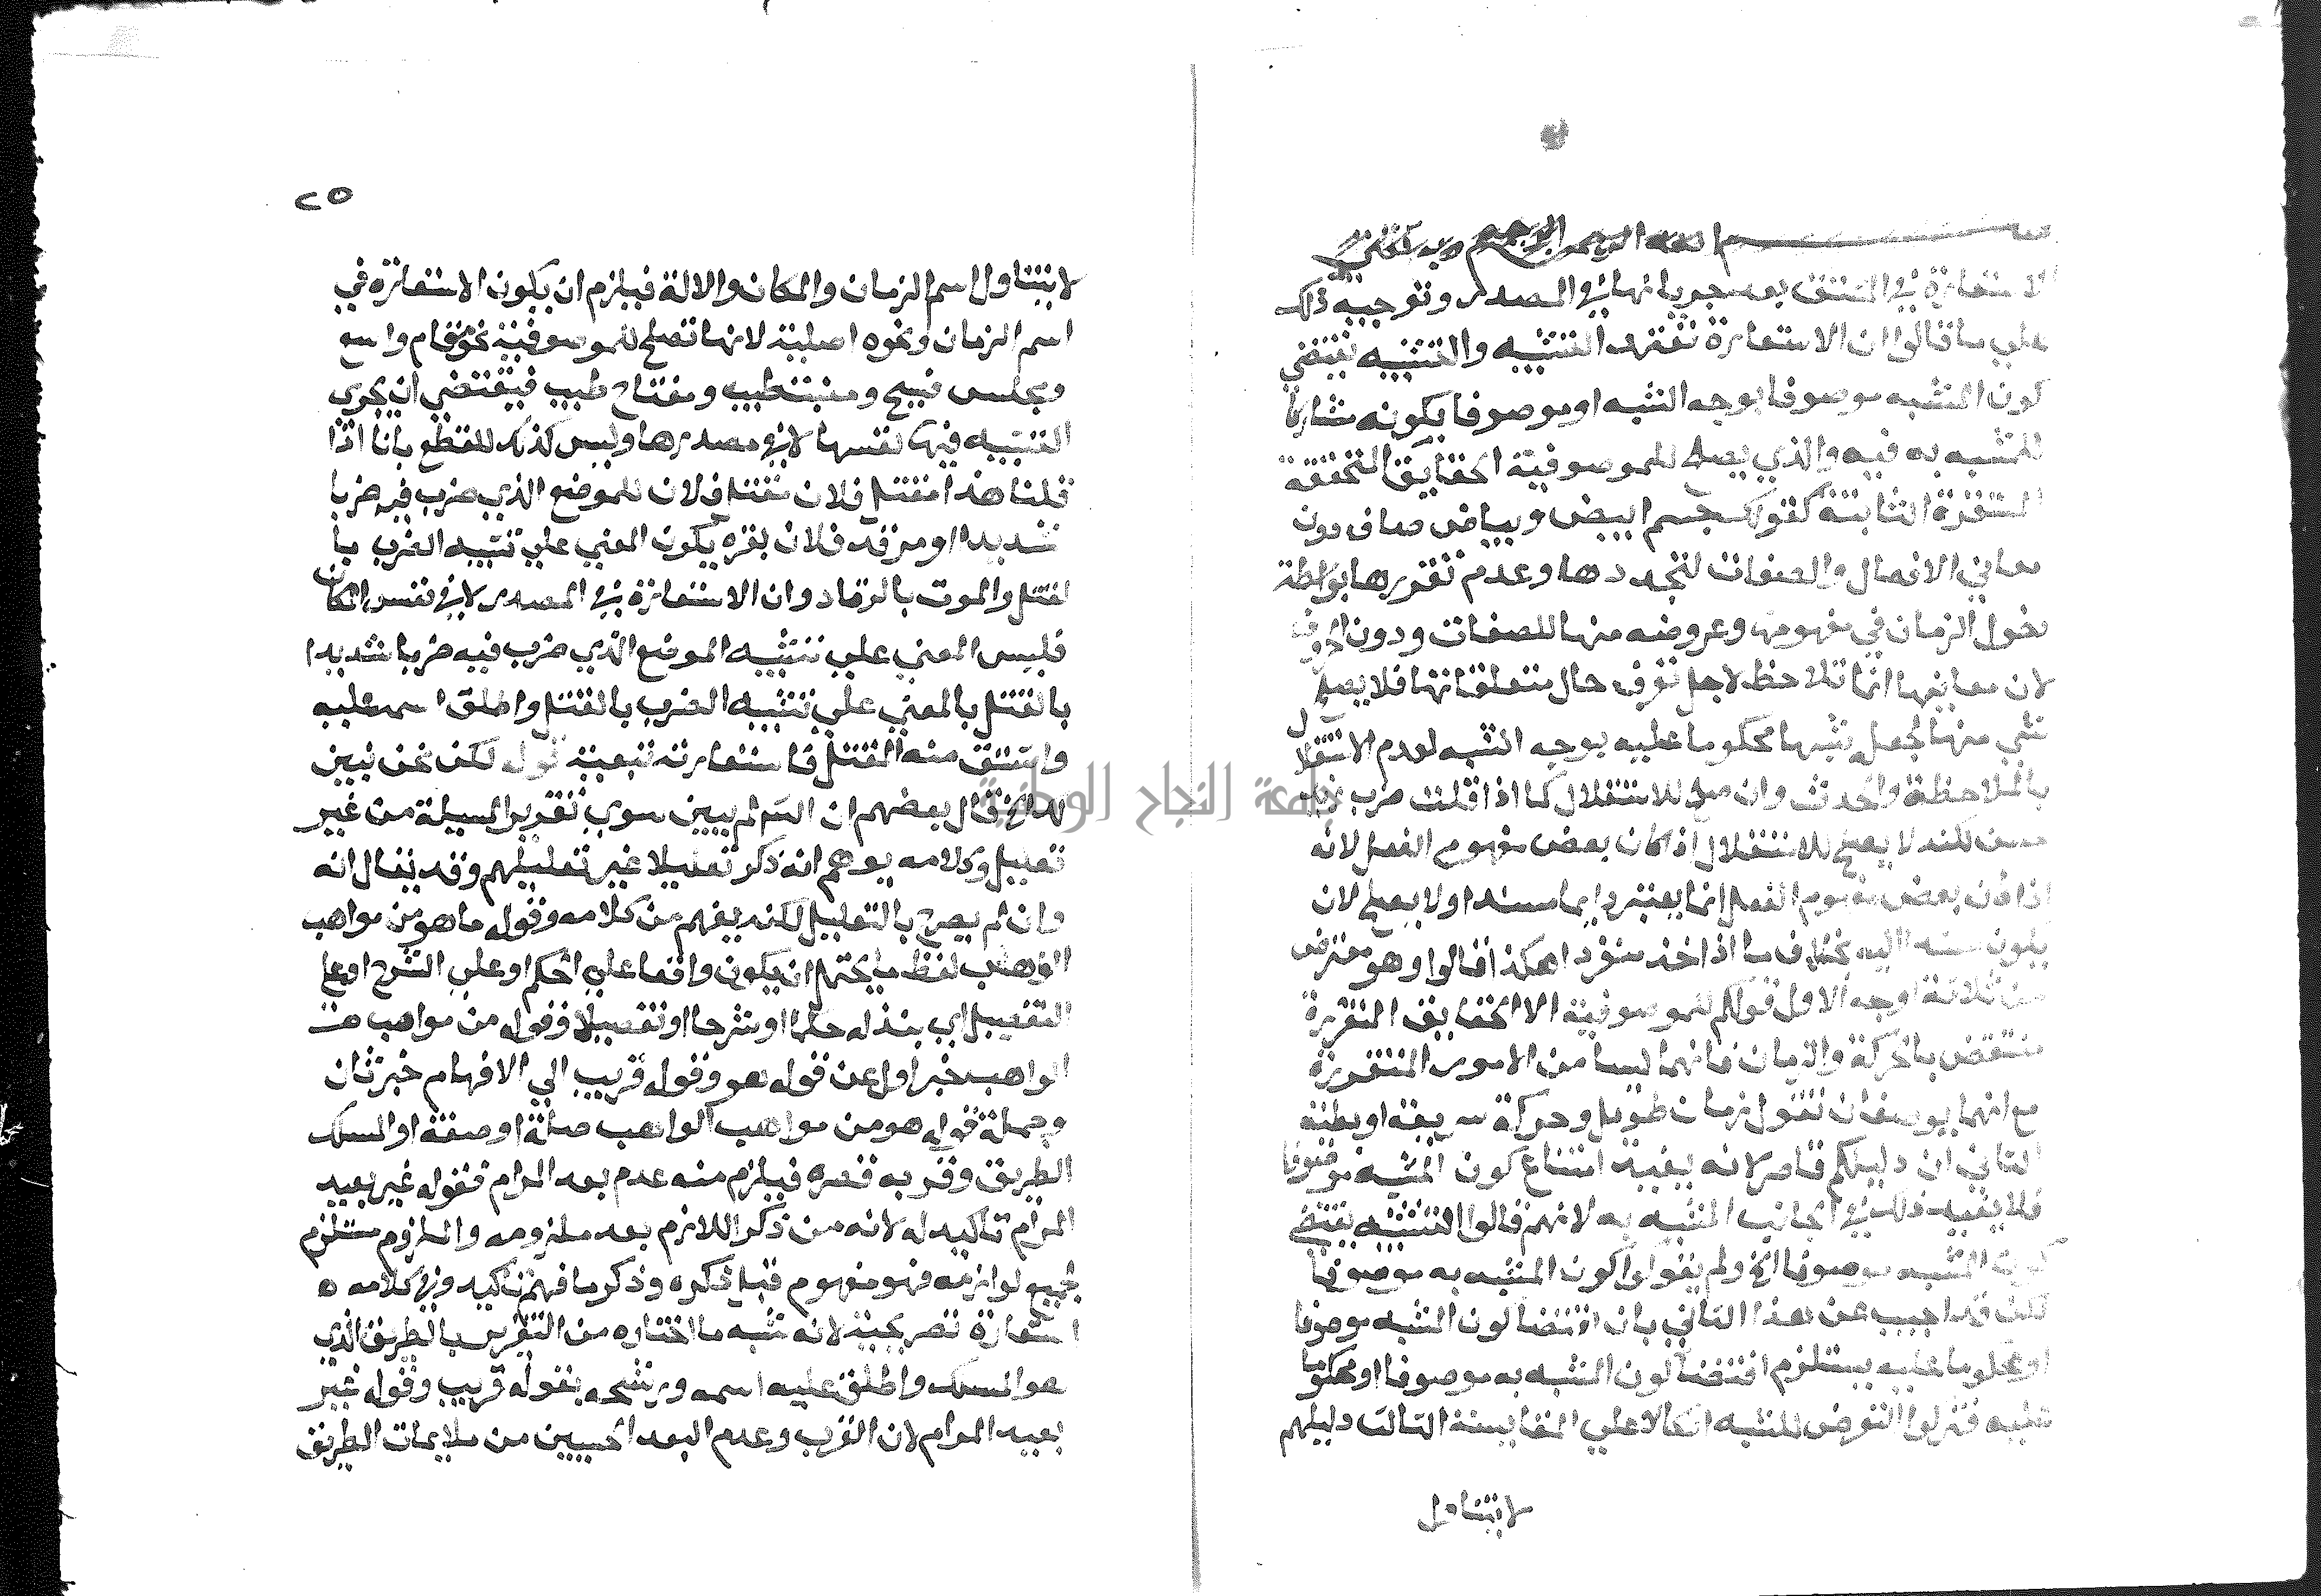 بسم الله الرحمن الرحيم وبه
الاستعارة في المشتق بعد جريانها في المصدر وتوجيه ذلك
علي ما قالوا ان الاستعارة تعتمد التشبيه والتشبيه يقتضي
كون المشبه موصوفا بوجه الشبه او موصوفا بكونه مشاركا
للمشبه به فيه والذي يصلح للموصوفية الحقايق المتحققة
المتقررة الثابتة كقولك جسم ابيض وبياض صاف دون
معاني الافعال والصفات لتجددها وعدم تقررها بواسطة
دخول الزمان في مفهومها وعروضه منها للصفات ودون الحروف
لان معانيها انما تلاحظ لاجل تعرف حال متعلقاتها فلا يصلح
شي منها لجعل مشبها محكوما عليه بوجه الشبه لعدم الاستقلال
بالملاحظة والحدث وان صلح للاستقلال كما اذا قلت ضرب زيد
حسن لكنه لا يصلح للاستقلال اذ اكان بعض مفهوم الفعل لانه
اذا كان بعض مفهوم الفعل انما يعتبر دايما مسندا ولا يصلح لان
يكون مسندا اليه بخلاف ما اذا اخذ منفردا هكذا قالوا وهو معترض
من ثلاثة اوجه الاول قولكم للموصوفية الا الحقايق المتقررة
منتقض بالحركة والزمان فانهما ليسا من الامور المتقررة
مع انهما يوصفان تقول زمان طويل وحركة سريعة او بطئة
الثاني ان دليلكم قاصر لانه يفيد امتناع كون المشبه موصوفا
فلا يفيد ذلك في الجانب المشبه به لانهم قالوا التشبيه يقتضي
كون المشبه موصوفا الخ ولم يقولوا كون المشبه به موصوفا
لكن قد اجيب عن هذا الثاني بان اقتضا كون المشبه موصوفا
او محكوما عليه يستلزم اقتضا كون المشبه به موصوفا او محكوما
عليه فتركوا التعرض للمشبه اتكالا علي المقايسة الثالث دليلهم
لا يتناول
٢٥
لا يتناول اسم الزمان والمكان والالة فيلزم ان يكون الاستعارة في
اسم الزمان ونحوه اصلية لانها تصلح للموصوفية نحو مقام واسع
ومجلس فسيح ومنبت طيب ومفتاح طيب فيقتضي ان يجري
التشبيه فيها نفسها لا في مصدرها وليس كذلك للقطع بانا اذا
قلنا هذا مقتل فلان مقتل فلان للموضع الذي ضرب فيه ضربا
شديدا او مرقد فلان لقبره يكون المعني علي تشبيه الضرب با
لقتل والموت بالرقاد وان الاستعارة في المصدر لا في نفس المكان
فليس المعني علي تشبيه الموضع الذي ضرب فيه ضربا شديدا
بالقتل بالمعني علي تشبيه الضرب بالقتل واطلق اسمه عليه
واشتق منه المقتل فاستعارته تبعية قوله لكن نحن نبين
لك الخ قال بعضهم ان الشم لم يبين سوي تقرير المسيلة من غير
تعليل وكلامه يوهم انه ذكر تعليلا غير تعليلهم وقد يقال انه
وان لم يصرح بالتعليل لكنه يفهم من كلامه وقوله ما هو من مواهب
الواهب لفظ ما يحتمل ان يكون واقعا علي الحكم او علي الشرح او علي
التفصيل اي بنذله حكما او شرحا او تفصيلا وقوله من مواهب
الواهب خبر اول عن قوله هو وقوله قريب الي الافهام خبر ثان
وجملة قوله هو من مواهب الواهب صلة او صفة او المسك
الطريق وقربه قصره فيلزم منه عدم بعد المرام فقوله غير بعيد
المرام تاكيد له لانه من ذكر اللازم بعد ملزومه والملزوم مستلزم
لجميع لوازمه فهو مفهوم قبل ذكره وذكر ما فهم تاكيد وفي كلامه ه
استعارة تصريحية لانه شبه ما اختاره من التقرير بالطريق الذي
هو المسلك واطلق عليه اسمه ورشحه بقوله قريب وقوله غير
بعيد المرام لان القرب وعدم البعد الحسيين من ملايمات الطريق